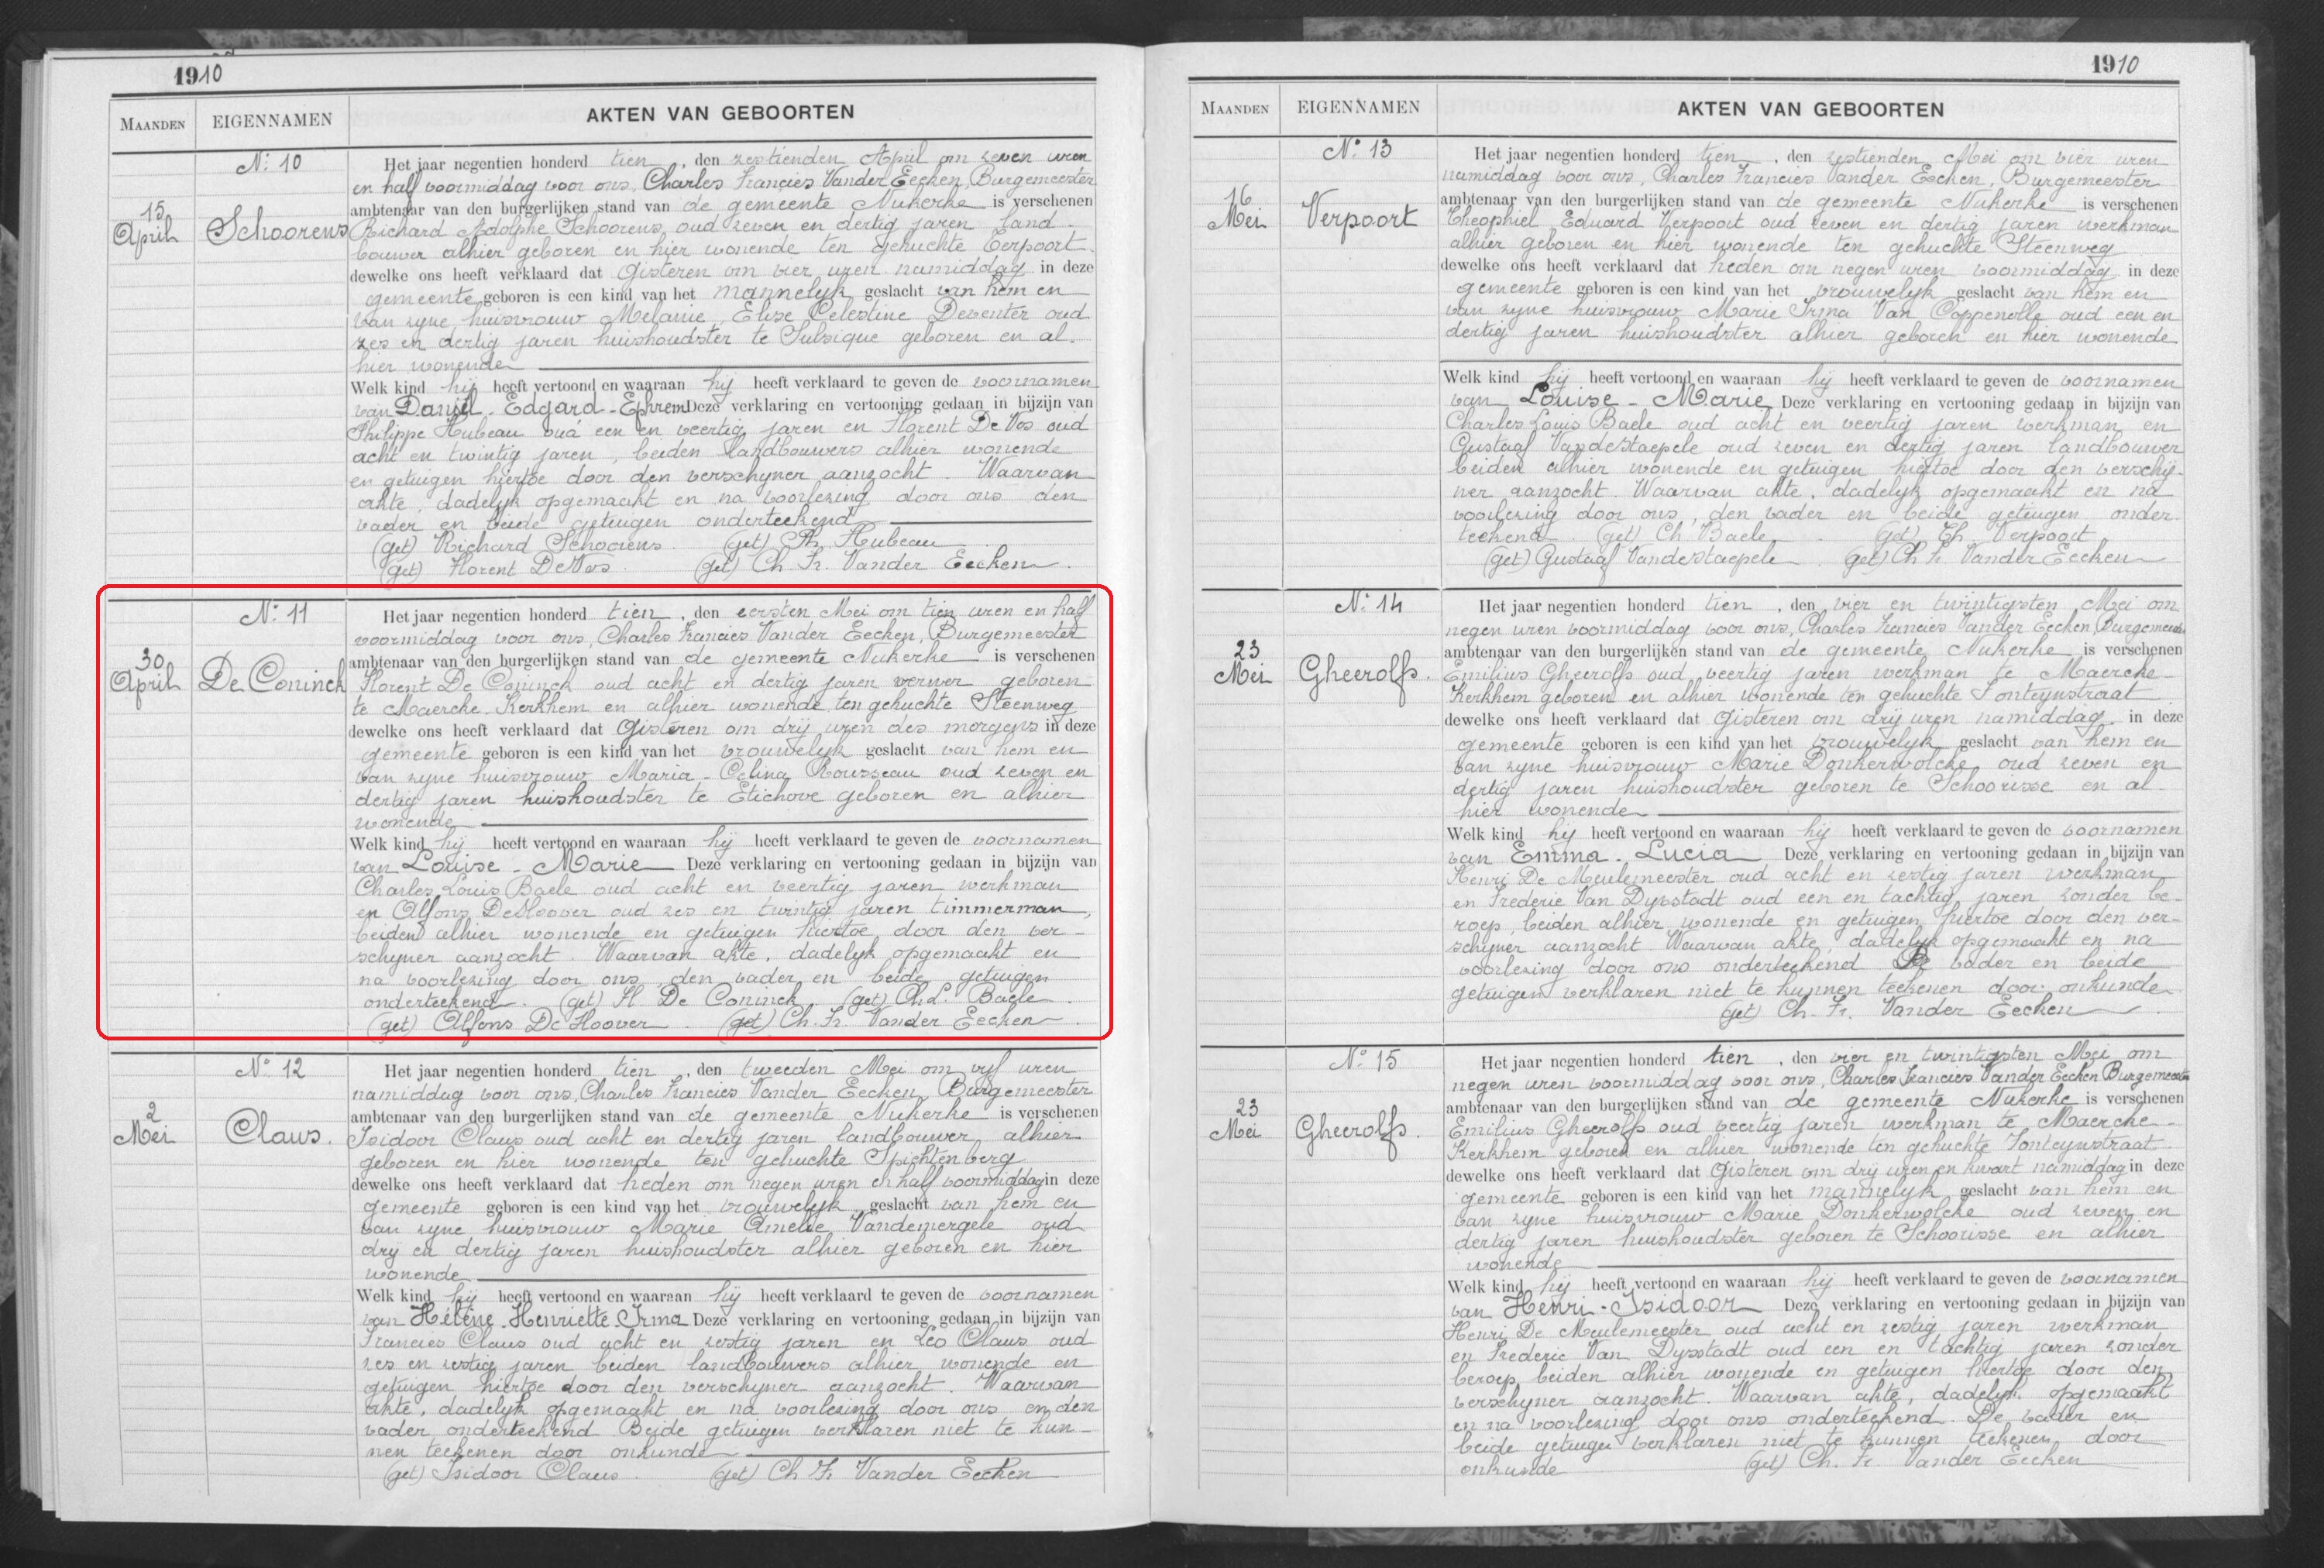 1910
MAANDEN EIGENNAMEN AKTEN VAN GEBOORTEN
N° 10
15 April
Schoorens
Het jaar negentien honderd tien, den zestienden April om zeven uren
en half voormiddag voor ons, Charles Francies Vander Eecken, Burgemeester
ambtenaar van den burgerlijken stand van de gemeente Nukerke is verschenen
Richard Adolphe Schoorens oud zeven en dertig jaren land-
bouwer alhier geboren en hier wonende ten gehuchte Eerpoort
dewelke ons heeft verklaard dat Gisteren om vier uren namiddag in deze
gemeente geboren is een kind van het mannelyk geslacht van hem en
van zyne huisvrouw Melanie, Elise Celestine Deventer oud
zes en dertig jaren huishoudster te Sulsique geboren en al-
hier wonende
Welk kind hij heeft vertoond en waaraan hij heeft verklaard te geven de voornamen
van Daniël-Edgard-Ephrem Deze verklaring en vertooning gedaan in bijzijn van
Philippe Hubeau oud een en veertig jaren en Florent De Vos oud
acht en twintig jaren, beiden landbouwers alhier wonende
en getuigen hiertoe door den verschyner aanzocht. Waarvan
akte, dadelyk opgemaakt en na voorlezing door ons den
vader en beide getuigen onderteekend
(get) Richard Schoorens (get) Ph. Hubeau
(get) Florent DeVos (get) Ch Fr. Vander Eecken.
N° 11
30 April
De Coninck
Het jaar negentien honderd tien, den eersten Mei om tien uren en half
voormiddag voor ons, Charles Francies Vander Eecken, Burgemeester
ambtenaar van den burgerlijken stand van de gemeente Nukerke is verschenen
Florent De Coninck oud acht en dertig jaren verwer geboren
te Maercke-Kerkhem en alhier wonende ten gehuchte Steenweg
dewelke ons heeft verklaard dat Gisteren om drij uren des morgens in deze
gemeente geboren is een kind van het vrouwelyk geslacht van hem en
van zyne huisvrouw Maria-Celina Rousseau oud zeven en
dertig jaren huishoudster te Etichove geboren en alhier
wonende
Welk kind hij heeft vertoond en waaraan hij heeft verklaard te geven de voornamen
van Louise-Marie Deze verklaring en vertooning gedaan in bijzijn van
Charles Louis Baele oud acht en veertig jaren werkman
en Alfons DeHoover oud zes en twintig jaren timmerman,
beiden alhier wonende en getuigen hiertoe door den ver-
schyner aanzocht. Waarvan akte, dadelyk opgemaakt en
na voorlezing door ons, den vader en beide getuigen
onderteekend. (get) Fl. De Coninck (get) Ch L. Baele.
(get) Alfons De Hoover. (get) Ch. Fr. Vander Eecken.
N° 12
2 Mei
Claus.
Het jaar negentien honderd tien, den tweeden Mei om vyf uren
namiddag voor ons, Charles Francies Vander Eecken, Burgemeester
ambtenaar van den burgerlijken stand van de gemeente Nukerke is verschenen
Isidoor Claus oud acht en dertig jaren landbouwer, alhier
geboren en hier wonende ten gehuchte Spichtenberg
dewelke ons heeft verklaard dat heden om negen uren en half voormiddag in deze
gemeente geboren is een kind van het vrouwelyk geslacht van hem en
van zyne huisvrouw Marie Amelie Vandemergele oud
dry en dertig jaren huishoudster alhier geboren en hier
wonende
Welk kind hij heeft vertoond en waaraan hij heeft verklaard te geven de voornamen
van Hélène, Henriette-Irma Deze verklaring en vertooning gedaan in bijzijn van
Francies Claus oud acht en zestig jaren en Leo Claus oud
zes en zestig jaren beiden landbouwers alhier wonende en
getuigen hiertoe door den verschyner aanzocht. Waarvan
akte, dadelyk opgemaakt en na voorlezing door ons en den
vader onderteekend Beide getuigen verklaren niet te kun-
nen teekenen door onkunde
(get) Isidoor Claus. (get) Ch Fr Vander Eecken
1910
MAANDEN EIGENNAMEN AKTEN VAN GEBOORTEN
N° 13
16 Mei
Verpoort
Het jaar negentien honderd tien, den zestienden Mei om vier uren
namiddag voor ons, Charles Francies Vander Eecken, Burgemeester
ambtenaar van den burgerlijken stand van de gemeente Nukerke is verschenen
Theophiel Eduard Verpoort oud zeven en dertig jaren werkman
alhier geboren en hier wonende ten gehuchte Steenweg
dewelke ons heeft verklaard dat heden om negen uren voormiddag in deze
gemeente geboren is een kind van het vrouwelyk geslacht van hem en
van zyne huisvrouw Marie Irma Van Coppenolle oud een en
dertig jaren huishoudster alhier geboren en hier wonende
Welk kind hij heeft vertoond en waaraan hij heeft verklaard te geven de voornamen
van Louise-Marie Deze verklaring en vertooning gedaan in bijzijn van
Charles Louis Baele oud acht en veertig jaren werkman en
Gustaaf VandeStaepele oud zeven en dertig jaren landbouwer
beiden alhier wonende en getuigen hiertoe door den verschij-
ner aanzocht. Waarvan akte, dadelyk opgemaakt en na
voorlezing door ons, den vader en beide getuigen onder-
teekend. (get) Ch Baele. (get) Th Verpoort
(get) Gustaaf VandeStaepele. (get) Ch Fr Vander Eecken
N° 14
23 Mei
Gheerolfs.
Het jaar negentien honderd tien, den vier en twintigsten Mei om
negen uren voormiddag voor ons, Charles Francies Vander Eecken, Burgemeester
ambtenaar van den burgerlijken stand van de gemeente Nukerke is verschenen
Emilius Gheerolfs oud veertig jaren werkman te Maercke-
Kerkhem geboren en alhier wonende ten gehuchte Fonteynstraat
dewelke ons heeft verklaard dat Gisteren om drij uren namiddag in deze
gemeente geboren is een kind van het vrouwelyk geslacht van hem en
van zyne huisvrouw Marie Donkerwolcke oud zeven en
dertig jaren huishoudster geboren te Schoorisse en al-
hier wonende
Welk kind hij heeft vertoond en waaraan hij heeft verklaard te geven de voornamen
van Emma-Lucia Deze verklaring en vertooning gedaan in bijzijn van
Henri De Meulemeester oud acht en zestig jaren werkman
en Frederic Van Dysstadt oud een en tachtig jaren zonder be-
roep, beiden alhier wonende en getuigen hiertoe door den ver-
schyner aanzocht Waarvan akte, dadelyk opgemaakt en na
voorlezing door ons onderteekend De vader en beide
getuigen verklaren niet te kunnen teekenen door onkunde
(get) Ch. Fr. Vander Eecken
N° 15
23 Mei
Gheerolfs.
Het jaar negentien honderd tien, den vier en twintigsten Mei om
negen uren voormiddag voor ons, Charles Francies Vander Eecken Burgemeester
ambtenaar van den burgerlijken stand van de gemeente Nukerke is verschenen
Emilius Gheerolfs oud veertig jaren werkman te Maercke-
Kerkhem geboren en alhier wonende ten gehuchte Fonteynstraat
dewelke ons heeft verklaard dat Gisteren om drij uren en kwart namiddag in deze
gemeente geboren is een kind van het mannelyk geslacht van hem en
van zyne huisvrouw Marie Donkerwolcke oud zeven en
dertig jaren huishoudster geboren te Schoorisse en alhier
wonende
Welk kind hij heeft vertoond en waaraan hij heeft verklaard te geven de voornamen
van Henri-Isidoor Deze verklaring en vertooning gedaan in bijzijn van
Henri De Meulemeester oud acht en zestig jaren werkman
en Frederic Van Dysstadt oud een en tachtig jaren zonder
beroep beiden alhier wonende en getuigen hiertoe door den
verschyner aanzocht. Waarvan akte, dadelyk opgemaakt
en na voorlezing door ons onderteekend. De vader en
beide getuigen verklaren niet te kunnen teekenen door
onkunde (get) Ch. Fr. Vander Eecken